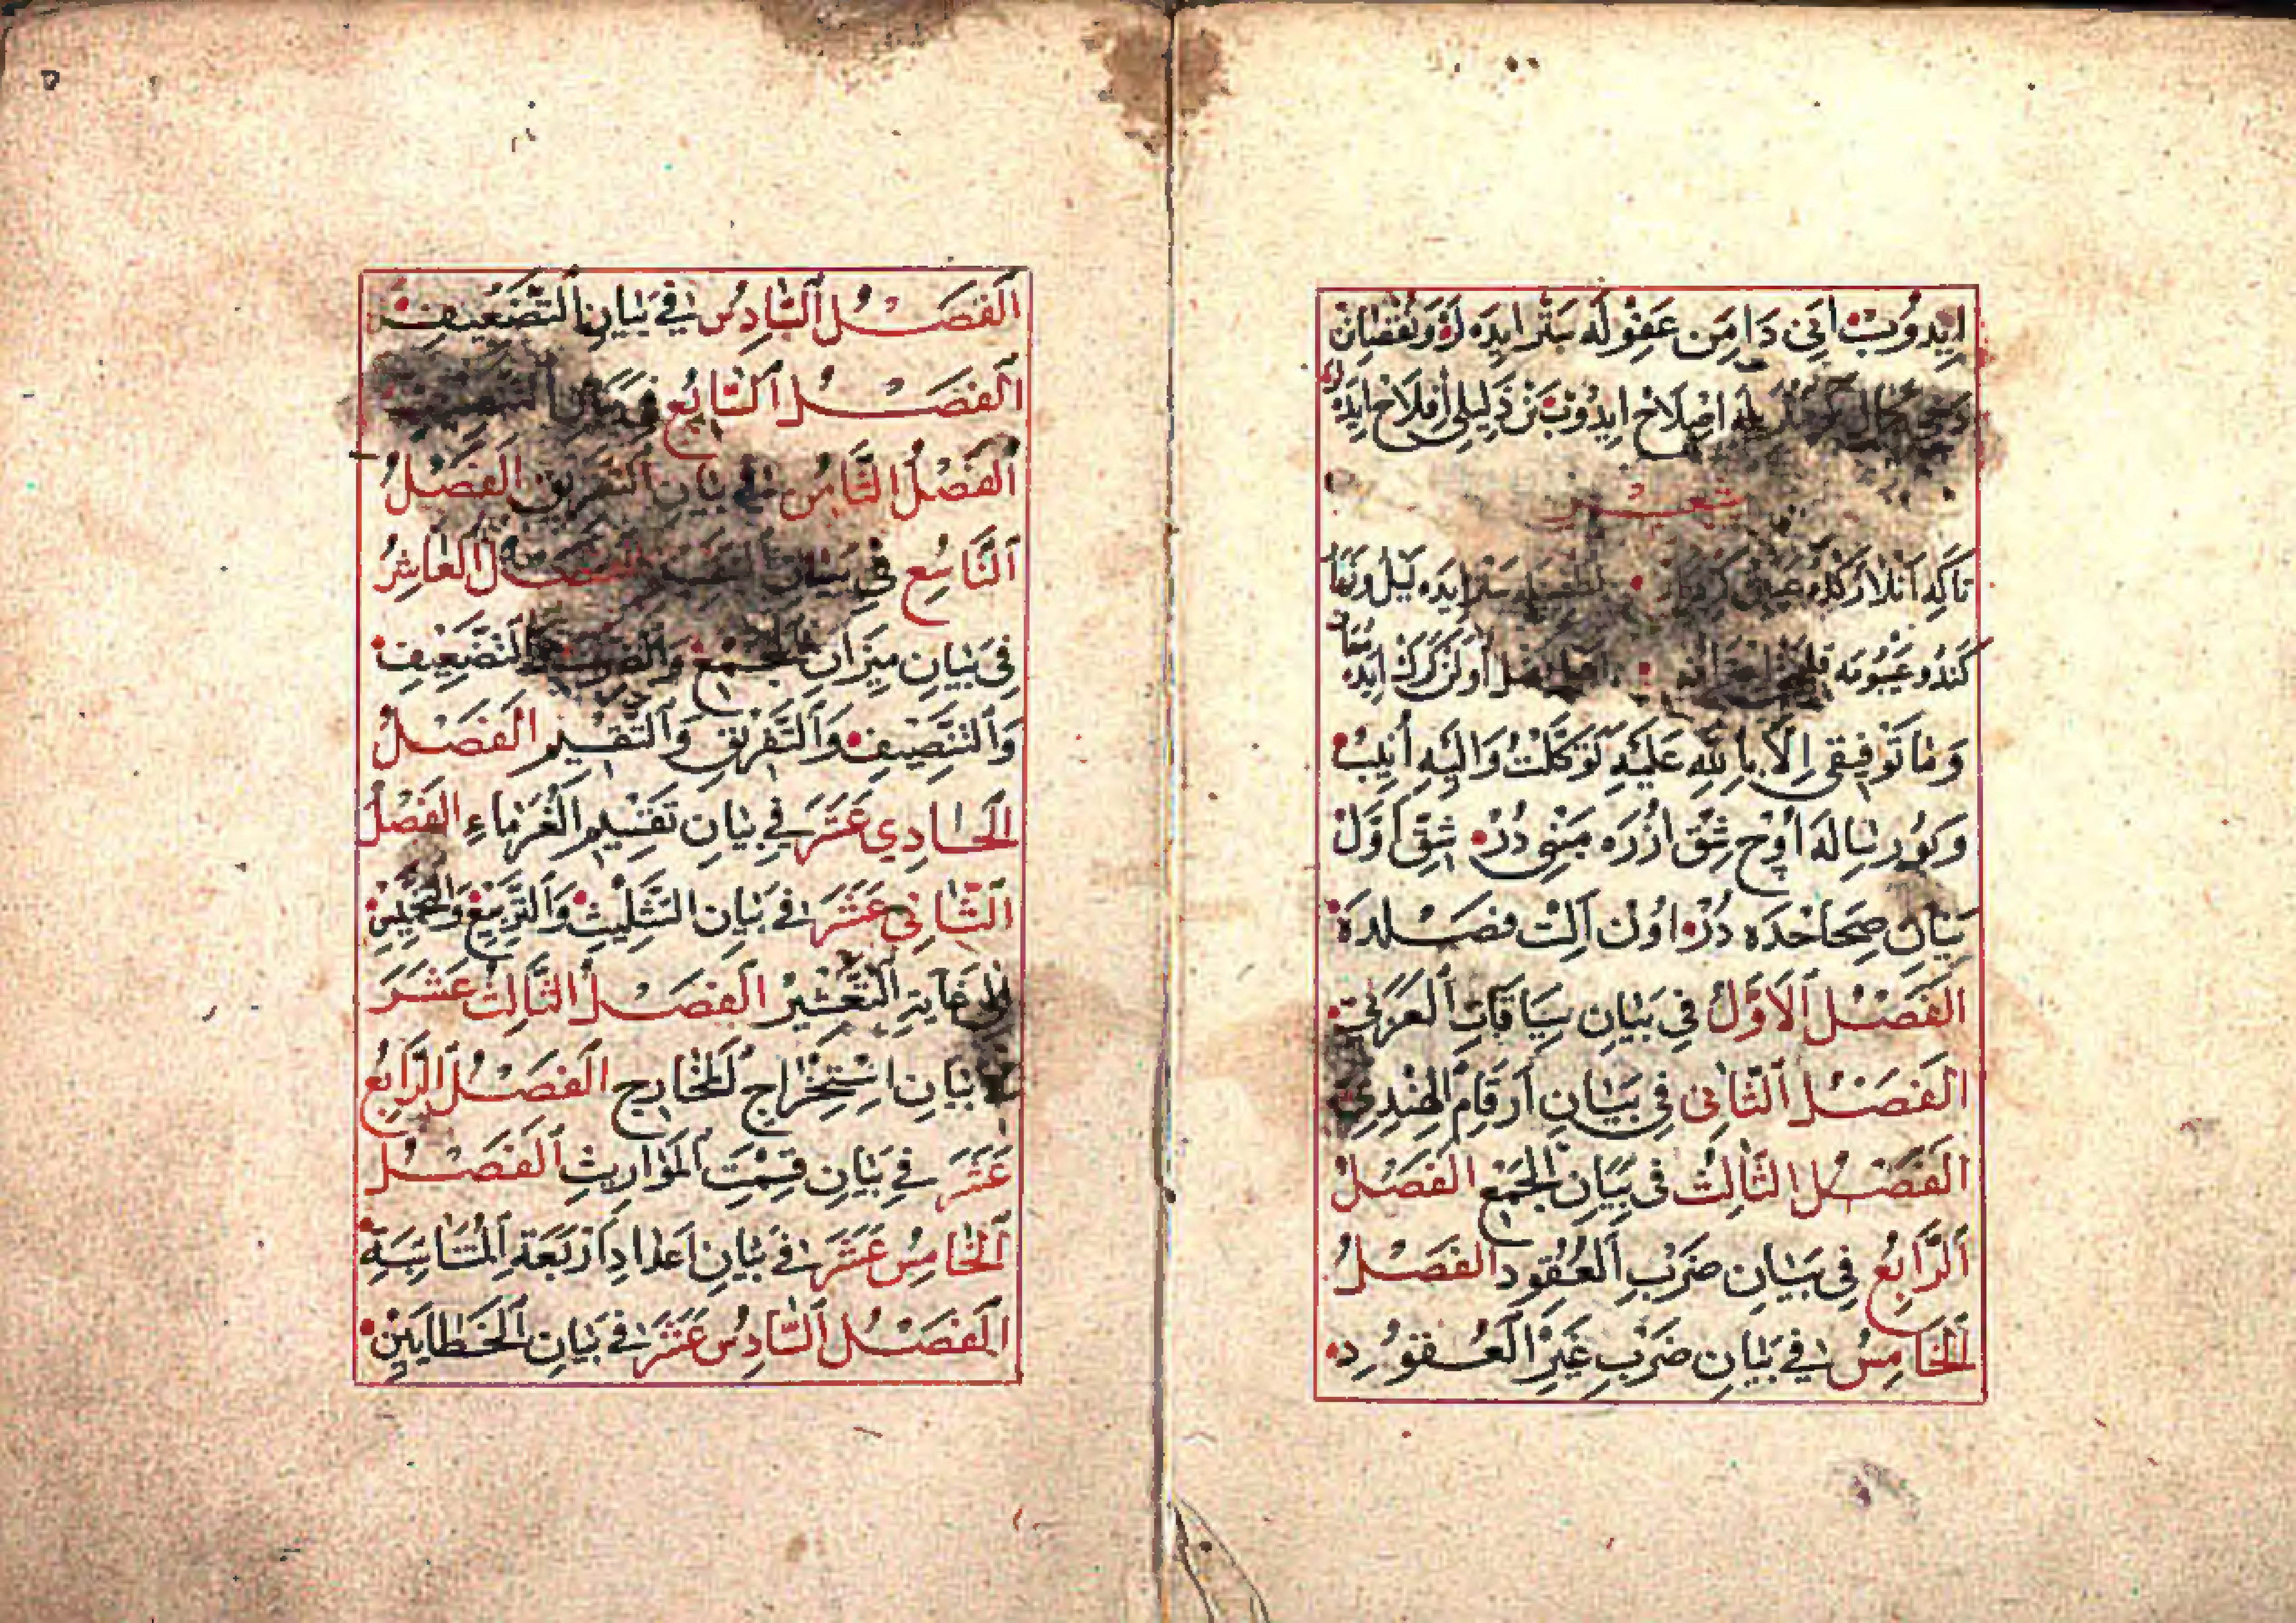 ايدوب انى دامن عفوله ستر ايده لر ونقصان
اصلاح ايدوب تن ذليلى افلاح ايده لر
شعر
تاكه انلارك ستر ايده ليل ونهار
كندو عيبومه اولن كرك ايده
وَمَا تَوْفِيقِى اِلَّا بِاللّٰهِ عَلَيْهِ تَوَكَّلْتُ وَاِلَيْهِ اُنِيبُ
وكور ساله اوج شق اوزره مبنى در شق اول
بيان صحاحده در اون آلت فصلده
الفصل الاول في بيان سياقات العربي
الفصل الثانى في بيان ارقام الهندي
الفصل الثالث فى بيان الجمع الفصل
الرابع في بيان ضرب العقود الفصل
الخامس في بيان ضرب غير العقود
الفصل السادس في بيان التضعيف
الفصل السابع في بيان التنصيف
الفصل الثامن في بيان التفريق الفصل
التاسع في بيان التقسيم الفصل العاشر
فى بيان ميزان الجمع والضرب والتضعيف
والتنصيف والتفريق والتقسيم الفصل
الحادي عشر في بيان تقسيم الغرماء الفصل
الثانى عشر في بيان التثليث والتربيع والتخميس
الى غاية التعشير الفصل الثالث عشر
بيان استخراج المخارج الفصل الرابع
عشر في بيان قسمت المواريث الفصل
الخامس عشر في بيان اعداد اربعة المتناسبة
الفصل السادس عشر في بيان الخطايين